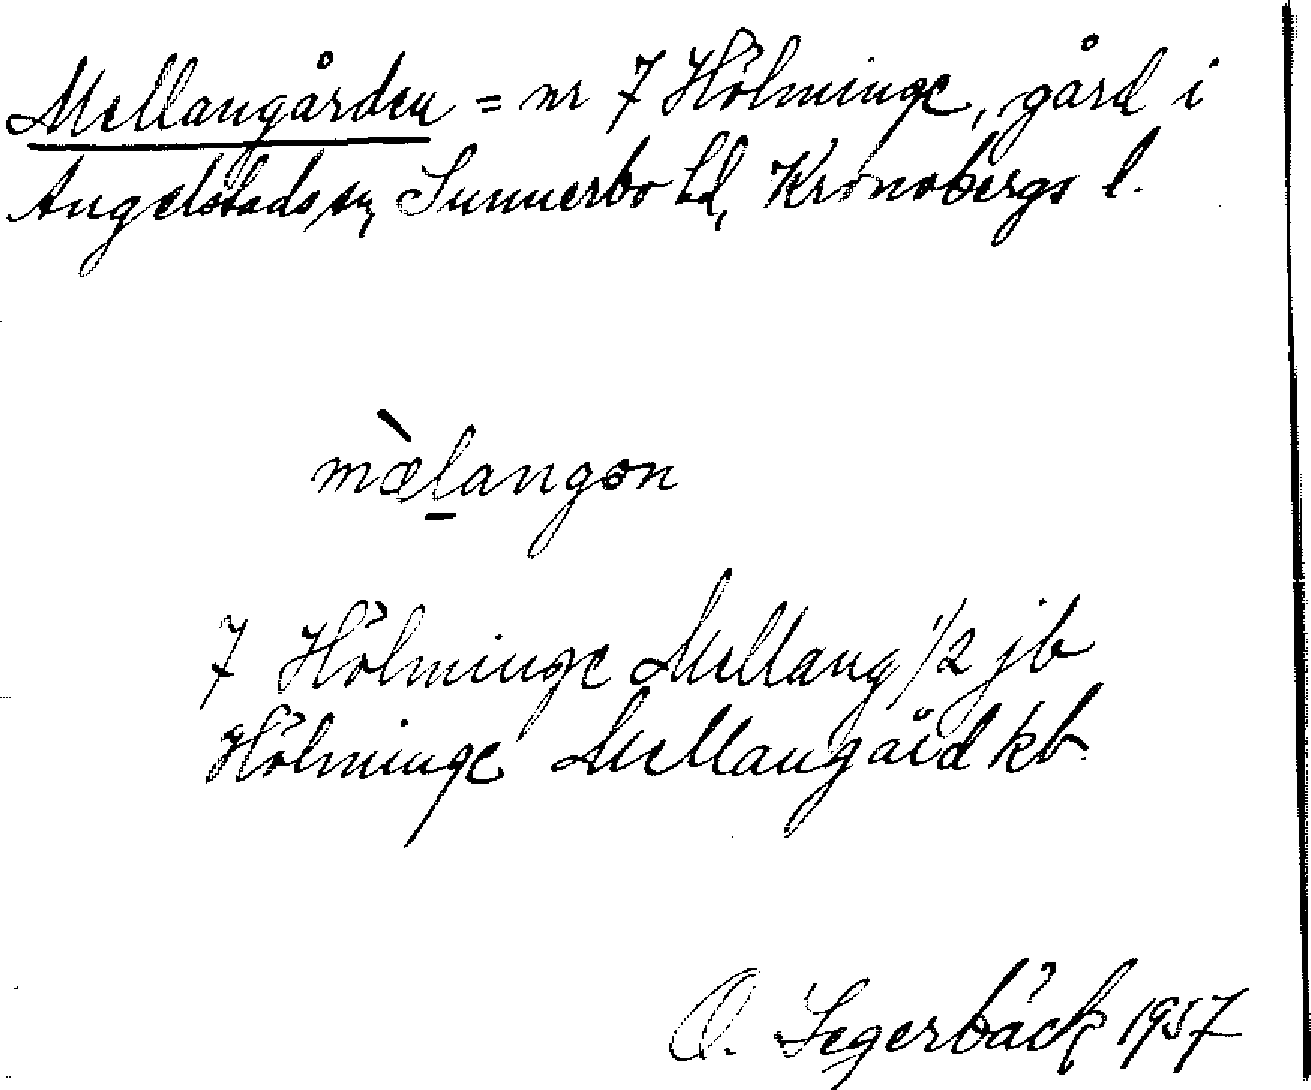 Mellangården = nr 7 Hölminge, gård i
Angelstads sn, Sunnerbo hd, Kronobergs l.
mæ̀l̠angon
7 Hölminge Mellang 1/2 jb
Hölminge Mellangård kb.
O. Segerbäck 1957